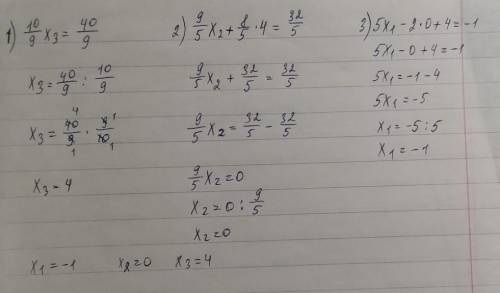 1) 10/9 x₃ = 40/9
x₃ = 40/9 : 10/9
x₃ = 40/9 · 9/10 4 1 1 1
x₃ = 4
2) 9/5 x₂ + 8/5 · 4 = 32/5
9/5 x₂ + 32/5 = 32/5
9/5 x₂ = 32/5 - 32/5
9/5 x₂ = 0
x₂ = 0 : 9/5
x₂ = 0
3) 5x₁ - 2·0 + 4 = -1
5x₁ - 0 + 4 = -1
5x₁ = -1 - 4
5x₁ = -5
x₁ = -5 : 5
x₁ = -1
x₁ = -1 x₂ = 0 x₃ = 4